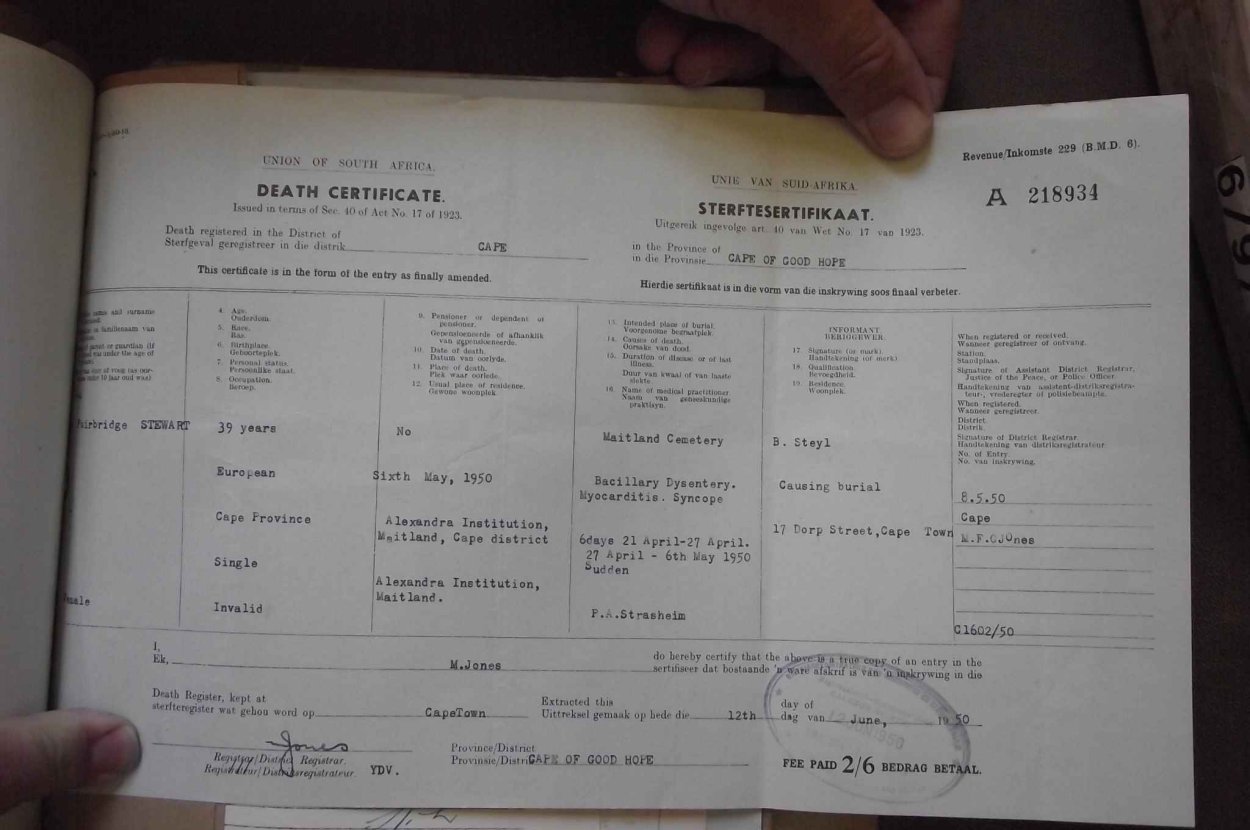 UNION OF SOUTH AFRICA.
DEATH CERTIFICATE.
Issued in terms of Sec. 40 of Act No. 17 of 1923.
Death registered in the District of
Sterfgeval geregistreer in die distrik CAPE
This certificate is in the form of the entry as finally amended.
Revenue/Inkomste 229 (B.M.D. 6).
UNIE VAN SUID-AFRIKA.
A 218934
STERFTESERTIFIKAAT.
Uitgereik ingevolge art. 40 van Wet No. 17 van 1923.
in the Province of
in die Provinsie CAPE OF GOOD HOPE
Hierdie sertifikaat is in die vorm van die inskrywing soos finaal verbeter.
name and surname
familienaam van
parent or guardian (if
was under the age of
4. Age.
Ouderdom.
5. Race.
Ras.
6. Birthplace.
Geboorteplek.
7. Personal status.
Persoonlike staat.
8. Occupation.
Beroep.
9. Pensioner or dependent of
pensioner.
Gepensioeneerde of afhanklik
van gepensioeneerde.
10. Date of death.
Datum van oorlyde.
11. Place of death.
Plek waar oorlede.
12. Usual place of residence.
Gewone woonplek.
13. Intended place of burial.
Voorgenome begraafplek.
14. Causes of death.
Oorsake van dood.
15. Duration of disease or of last
illness.
Duur van kwaal of van laaste
siekte.
16. Name of medical practitioner.
Naam van geneeskundige
praktisyn.
INFORMANT
BERIGGEWER
17. Signature (or mark)
Handtekening (of merk)
18. Qualification.
Bevoegdheid.
19. Residence.
Woonplek.
When registered or received.
Wanneer geregistreer of ontvang.
Station.
Standplaas.
Signature of Assistant District Registrar,
Justice of the Peace, or Police Officer.
Handtekening van assistent-distriksregistra-
teur-, vrederegter of polisiebeampte.
When registered.
Wanneer geregistreer.
District.
Distrik.
Signature of District Registrar.
Handtekening van distriksregistrateur
No. of Entry.
No. van inskrywing.
Fairbridge STEWART
39 years
No
Maitland Cemetery
B. Steyl
European
Sixth May, 1950
Bacillary Dysentery.
Myocarditis. Syncope
Causing burial
8.5.50
Cape Province
Alexandra Institution,
Maitland, Cape district
6days 21 April-27 April.
27 April - 6th May 1950
Sudden
17 Dorp Street,Cape Town
Cape
M.F.CJones
Single
Alexandra Institution,
Maitland.
male
Invalid
P.A.Strasheim
C1602/50
I,
Ek, M.Jones do hereby certify that the above is a true copy of an entry in the
sertifiseer dat bostaande 'n ware afskrif is van 'n inskrywing in die
Death Register, kept at
sterfteregister wat gehou word op CapeTown
Extracted this
Uittreksel gemaak op hede die 12th
day of
dag van June, 1950
Jones
Registrar/District Registrar.
Registrateur/Distriksregistrateur. YDV.
Province/District
Provinsie/Distrik CAPE OF GOOD HOPE
FEE PAID 2/6 BEDRAG BETAAL.